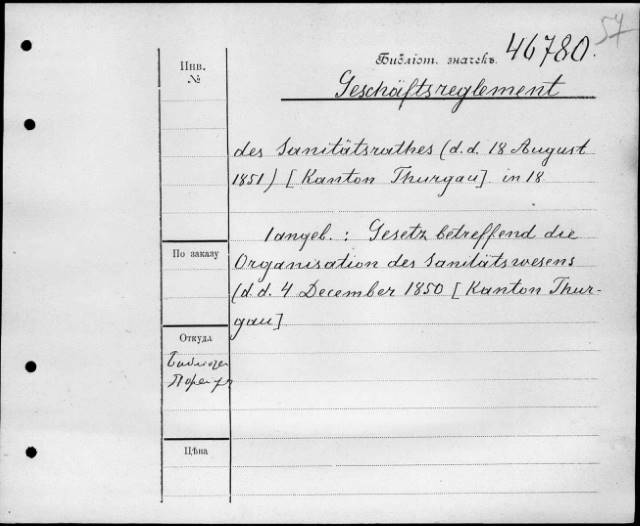 57
Инв.
№
Библіот. значекъ. 46780.
Geschäftsreglement
des Sanitätsrathes (d.d. 18 August
1851) [Kanton Thurgau] in 18
(angeb.: Gesetz betreffend die
По заказу
Organisation des Sanitätswesens
(d.d. 4 December 1850 [Kanton Thur-
gau]
Откуда
Цѣна